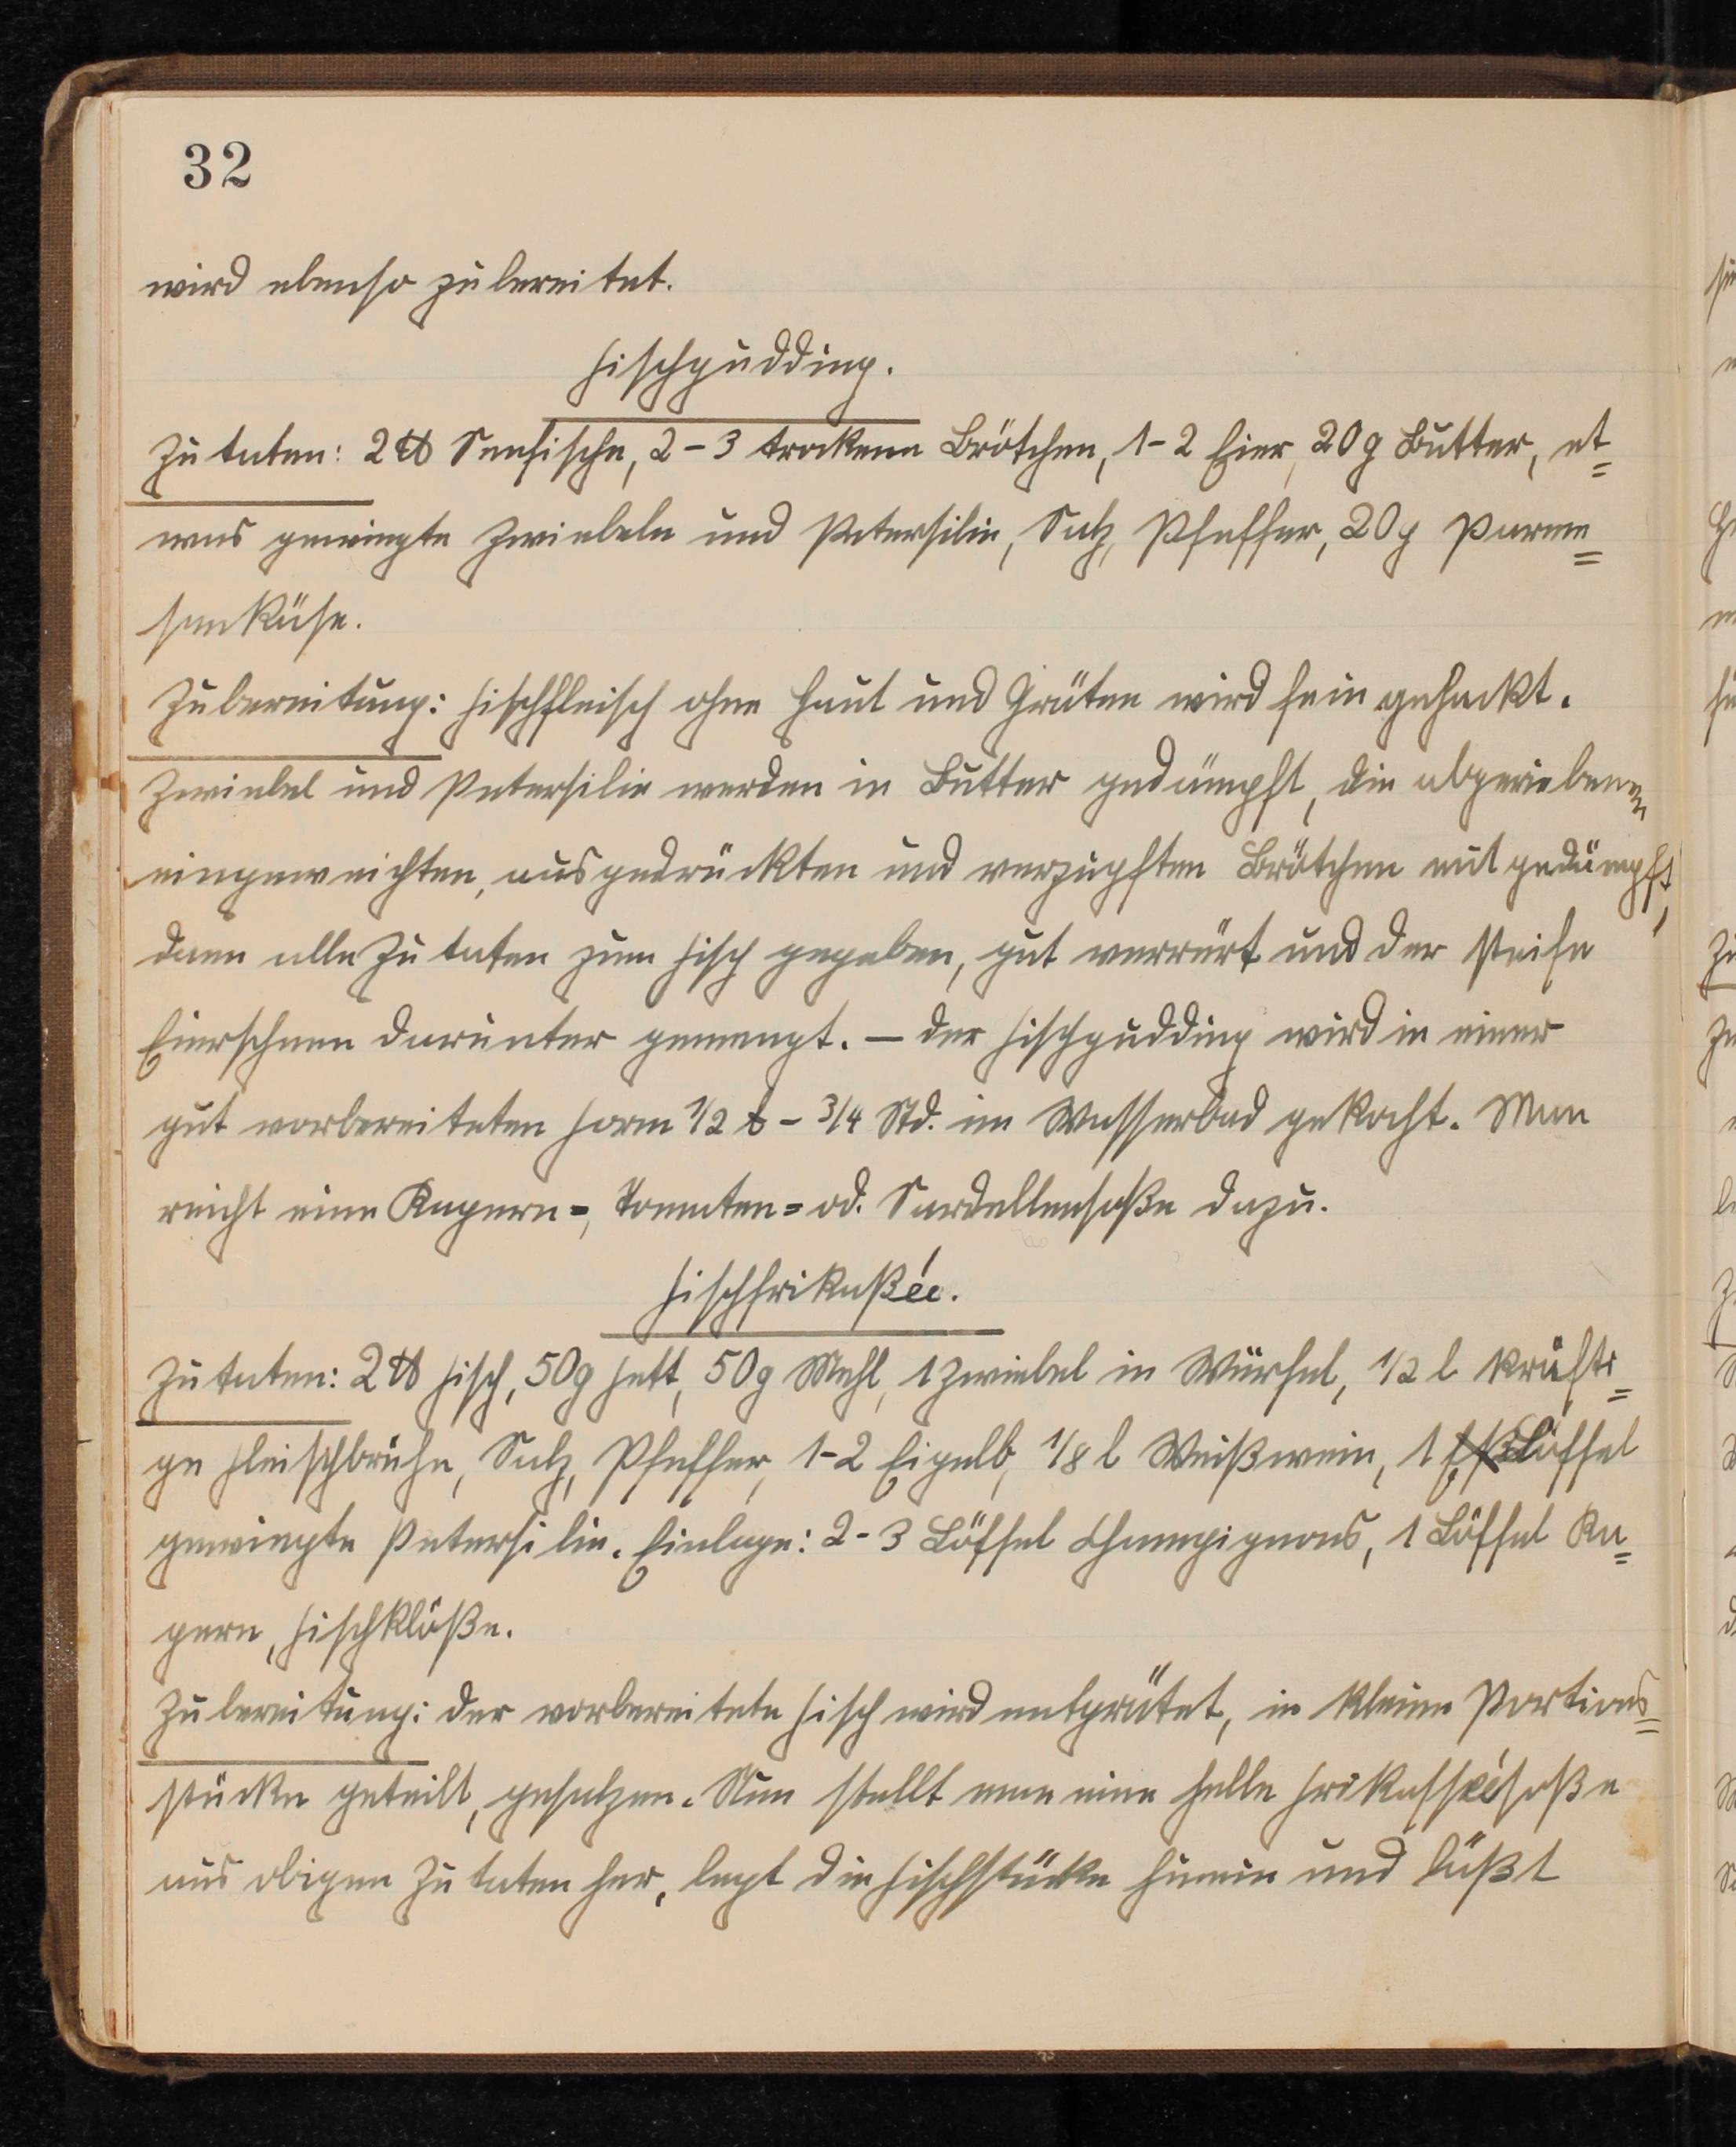 32
wird ebenso zubereitet.
Fischpudding.
Zutaten: 2 ℔ Seefische, 2-3 trockene Brötchen, 1-2 Eier, 20g Butter, et=
was gewiegte Zwiebeln und Petersilie, Salz, Pfeffer, 20g Parme=
sankäse.
Zubereitung: Fischfleisch ohne Haut und Gräten wird fein gehackt.
Zwiebel und Petersilie werden in Butter gedämpft, die abgeriebenen
eingeweichten, ausgedrückten und verzupften Brötchen mitgedämpft,
dann alle Zutaten zum Fisch gegeben, gut verrürt und der steife
Eierschnee darunter gemengt. – Der Fischpudding wird in einer
gut vorbereiteten Form 1/2 - 3/4 Std. im Wasserbad gekocht. Man
reicht eine Kapern=, Tomaten= od. Sardellensoße dazu.
Fischfrikaßée.
Zutaten: 2 ℔ Fisch, 50g Fett, 50g Mehl, 1 Zwiebel in Würfel, 1/2 l kräfti=
ge Fleischbrühe, Salz, Pfeffer, 1-2 Eigelb, 1/8 l Weißwein, 1 Löffel
gewiegte Petersilie. Einlage: 2-3 Löffel Champignons, 1 Löffel Ka=
pern, Fischklöße.
Zubereitung: Der vorbereitete Fisch wird entgrätet, in kleine Portions=
stücke geteilt, gesalzen. Nun stellt man eine helle Frikasséesoße
aus obigen Zutaten her, legt die Fischstücke hinein und läßt